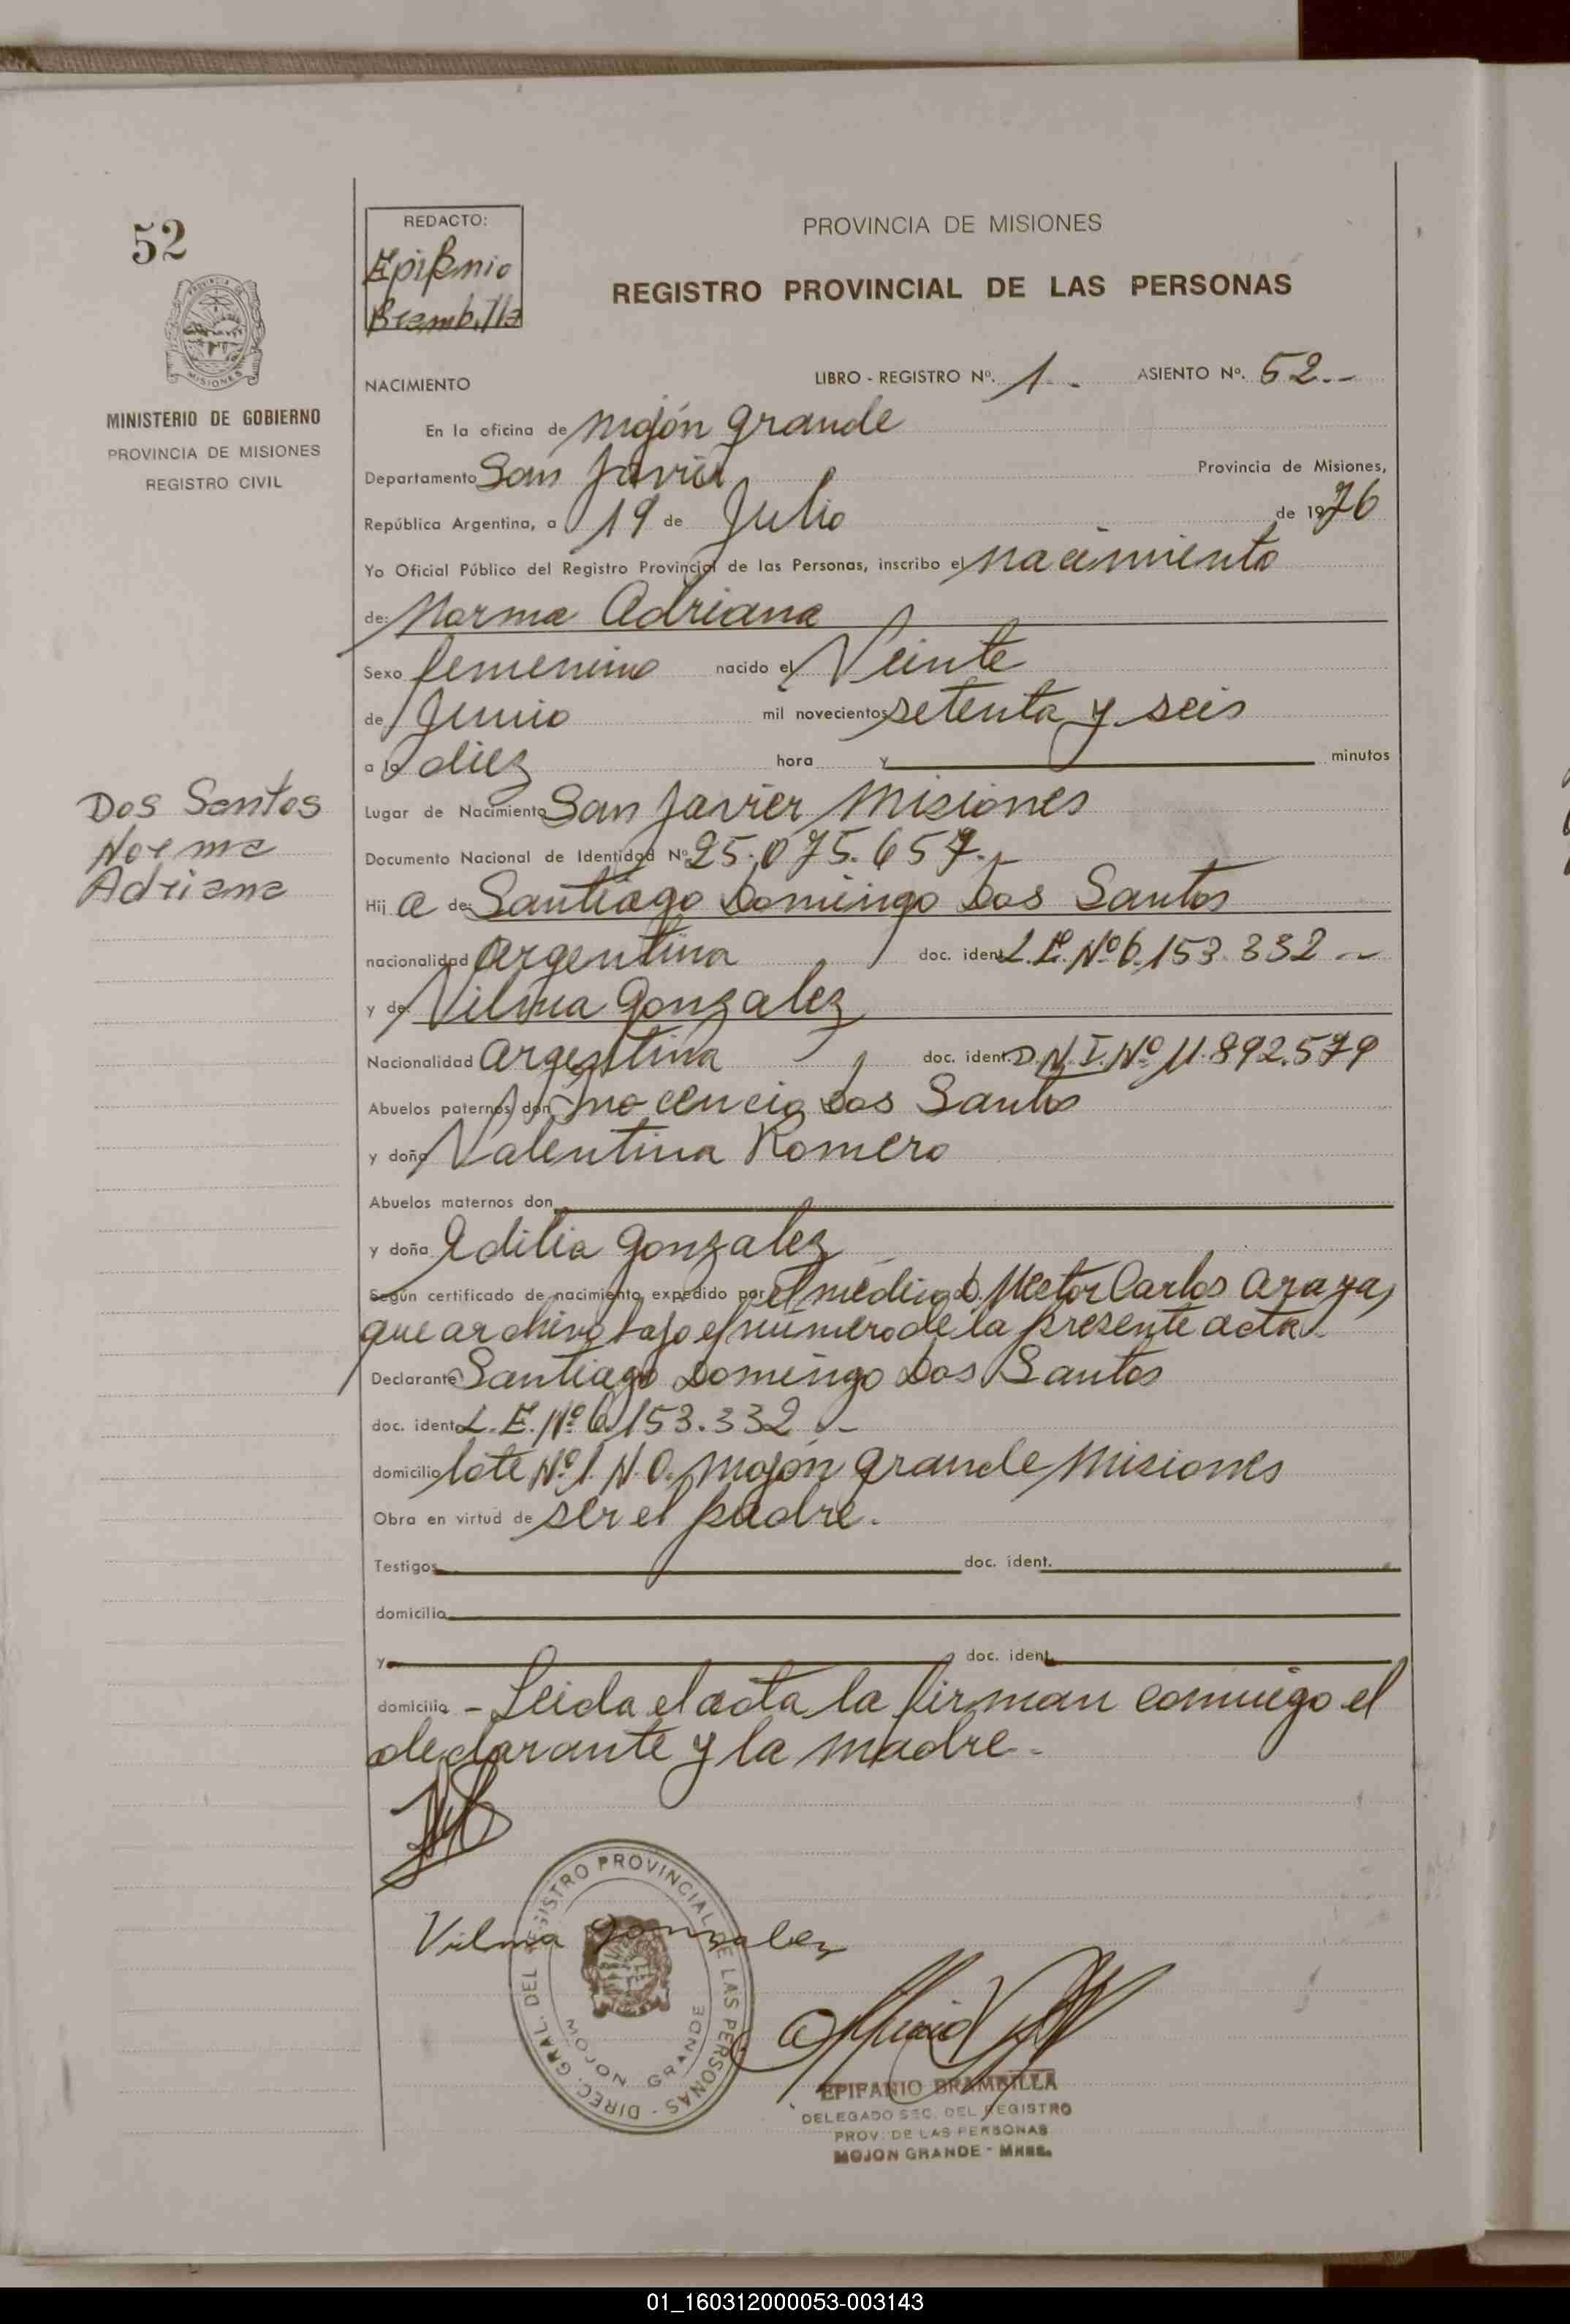 52
PROVINCIA DE MISIONES
MINISTERIO DE GOBIERNO
PROVINCIA DE MISIONES
REGISTRO CIVIL
Dos Santos
Norma
Adriana
REDACTO:
Epifanio
Brambilla
PROVINCIA DE MISIONES
REGISTRO PROVINCIAL DE LAS PERSONAS
NACIMIENTO LIBRO - REGISTRO Nº. 1.- ASIENTO Nº. 52.-
En la oficina de Mojón grande
Departamento San Javier Provincia de Misiones,
República Argentina, a 19 de Julio de 1976
Yo Oficial Público del Registro Provincial de las Personas, inscribo el nacimiento
de: Norma Adriana
Sexo femenino nacido el Veinte
de Junio mil novecientos setenta y seis
a la diez hora y minutos
Lugar de Nacimiento San Javier Misiones
Documento Nacional de Identidad Nº 25.075.657.-
Hij a de: Santiago Domingo Dos Santos
nacionalidad argentina doc. ident. L.E. Nº 6.153.332 -
y de: Vilma Gonzalez
Nacionalidad argentina doc. ident. D.N.I. Nº 11.892.579
Abuelos paternos don Inocencio Dos Santos
y doña Valentina Romero
Abuelos maternos don
y doña Edilia Gonzalez
Según certificado de nacimiento expedido por el médico D. Hector Carlos Araya,
que archivo bajo el número de la presente acta.
Declarante Santiago Domingo Dos Santos
doc. ident. L.E. Nº 6.153.332.-
domicilio lote Nº 1. N.O. Mojón grande Misiones
Obra en virtud de ser el padre.
Testigos doc. ident.
domicilio
y doc. ident.
domicilio - Leida el acta la firman conmigo el
declarante y la madre.-
Vilma Gonzalez
DIREC. GRAL. DEL REGISTRO PROVINCIAL DE LAS PERSONAS -
MOJON GRANDE
EPIFANIO BRAMBILLA
DELEGADO SEC. DEL REGISTRO
PROV. DE LAS PERSONAS
MOJON GRANDE - Mnes.
01_160312000053-003143